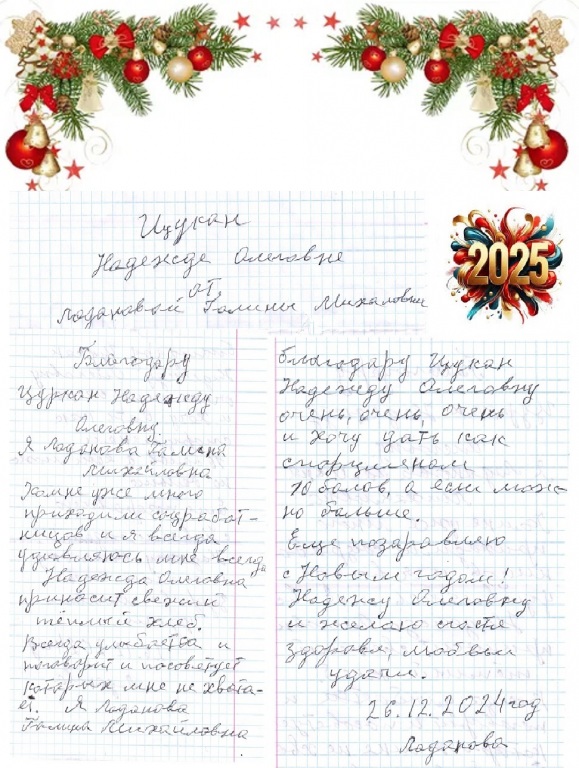 Ицукан
Надежде Олеговне
от
Лодановой Галины Михаловны
2025
Благодару
Цуркан Надежду
Олеговну.
Я Лоданова Галина
Михайловна
Комне уже много
приходили соцработ-
ницов и я всегда
удивляюсь мне всегда
Надежда Олеговна
приносит свежий
тёплый хлеб.
Всегда улыбается и
поговорит и посоветует
которых мне не хвата-
ет. Я Лоданова
Галина Михайловна
благодару Цуркан
Надежду Олеговну
очень, очень, очень
и хочу дать как
10 балов, а если мож-
но больше.
Еще позаравляю
с Новым годом!
Надежу Олеговну
и желаю счастя
здоровя, любвы
удачи.
26.12.2024 год
Лоданова